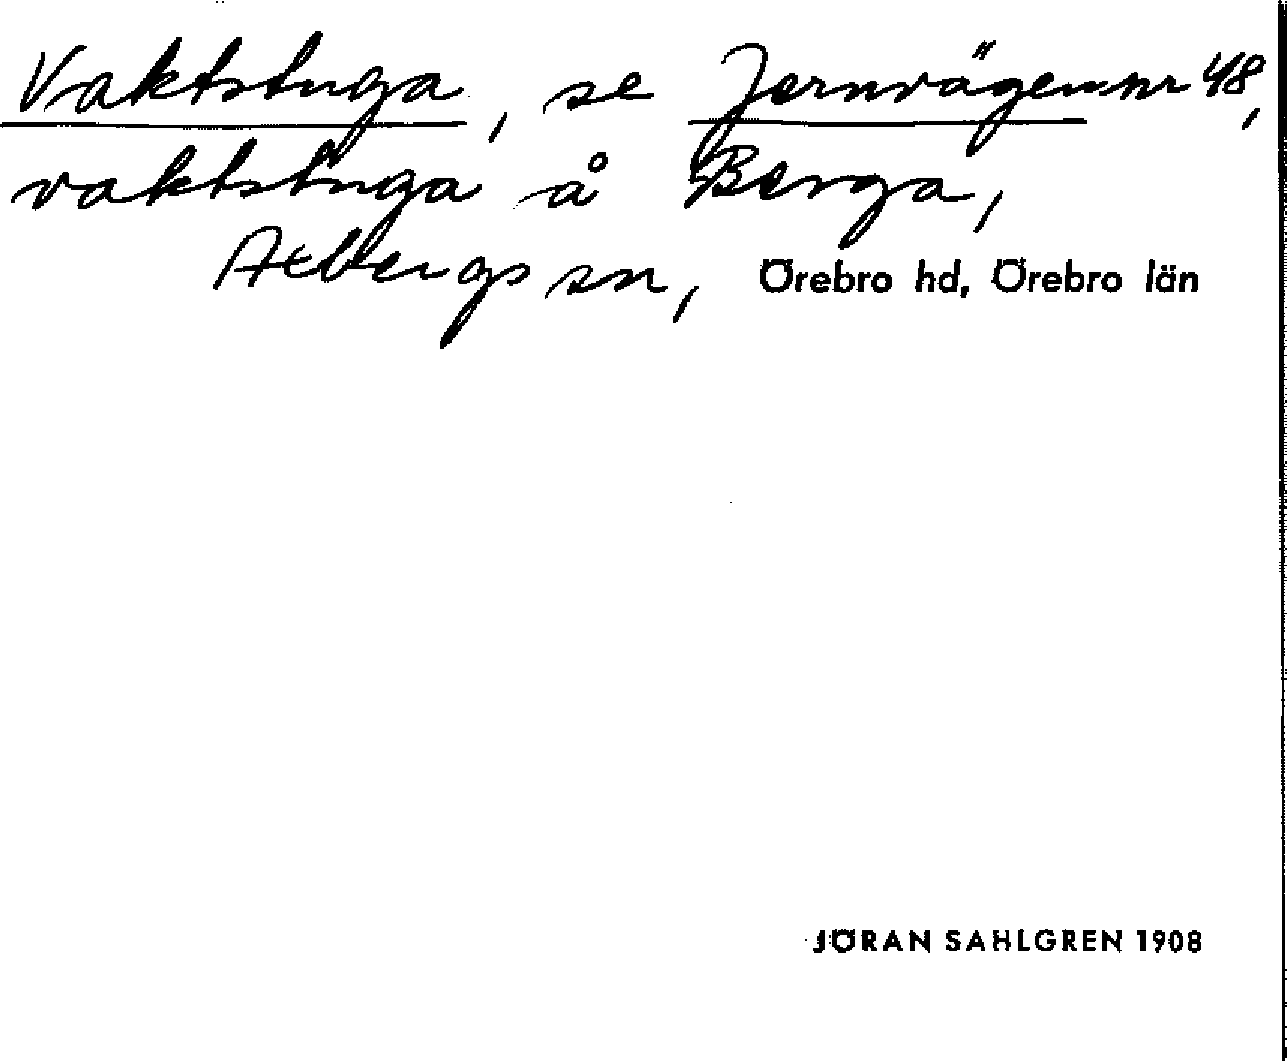 Vaktstuga, se Jernvägen nr 48,
vaktstuga å Berga,
Axbergs sn, Örebro hd, Örebro län
JÖRAN SAHLGREN 1908